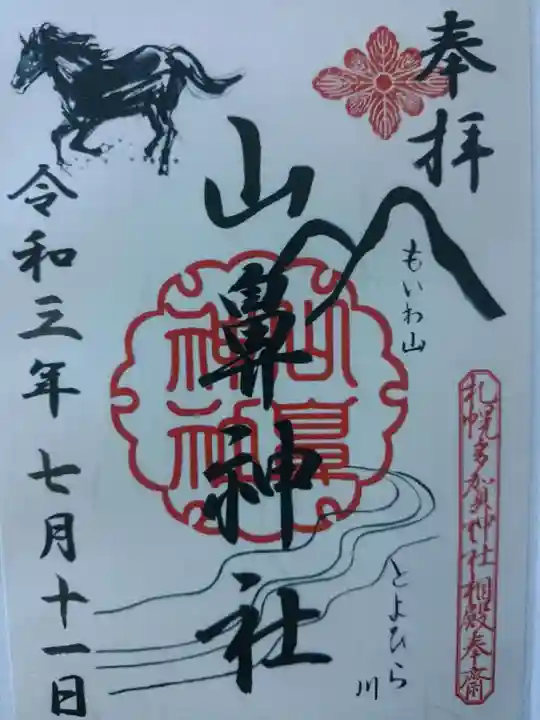 奉拝
もいわ山
札幌多賀神社相殿奉齋
とよひら川
山鼻神社
山鼻神社
令和三年七月十一日